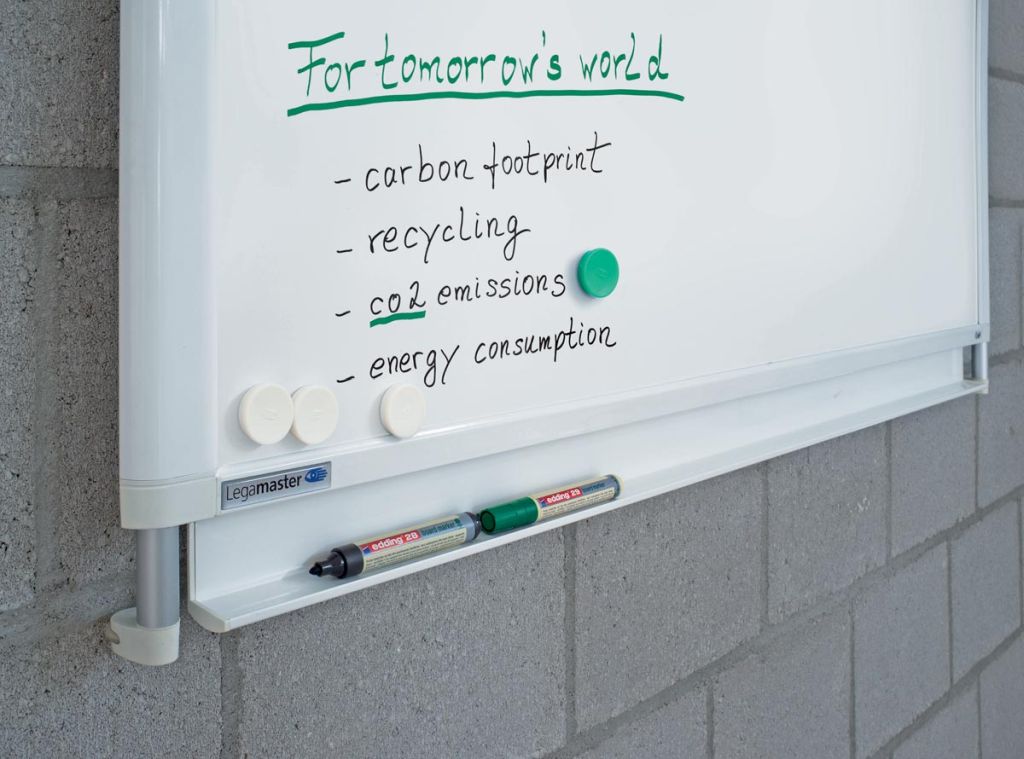 For tomorrow's world
- carbon footprint
- recycling
- co2 emissions
- energy consumption
Legamaster
edding 28 board marker
edding 29 board marker